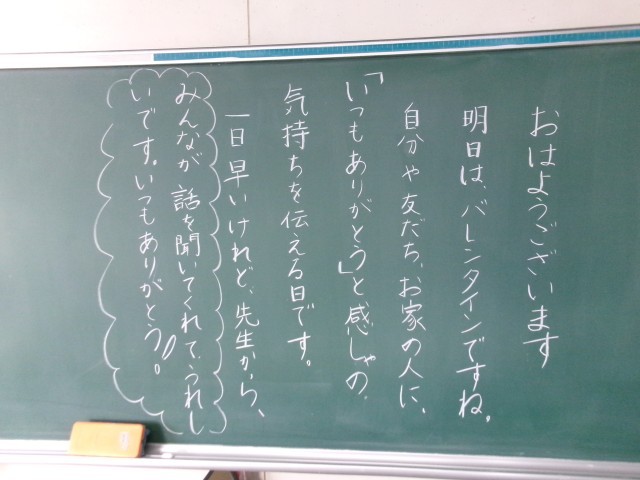 おはようございます
明日は、バレンタインですね。
自分や友だち、お家の人に、
「いつもありがとう」と感しゃの
気持ちを伝える日です。
一日早いけれど、先生から、
みんなが話を聞いてくれて、うれし
いです。いつもありがとう。